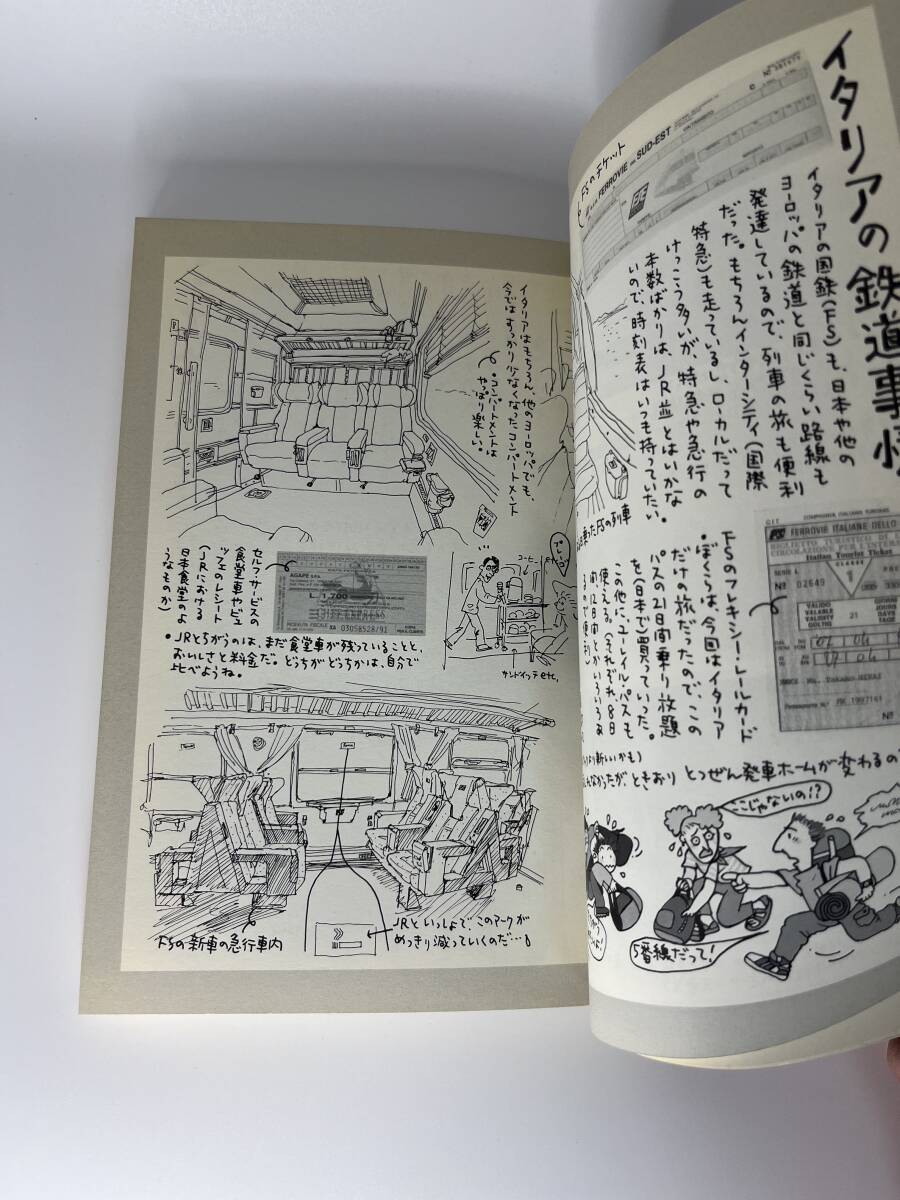 イタリアの鉄道事情
FSのチケット
FERROVIE DEL SUD-EST
イタリアの国鉄(FS)も、日本や他の
ヨーロッパの鉄道と同じくらい路線も
発達しているので、列車の旅も便利
だった。もちろんインターシティ(国際
特急)も走っているし、ローカルだって
けっこう多いが、特急や急行の
本数ばかりは、JR並とはいかな
いので、時刻表はいつも持っていたい。
乗ったFSの列車
FSのフレキシー・レールカード
•ぼくらは、今回はイタリア
だけの旅だったので、この
パスの21日間乗り放題
を(日本で)買っていった。
この他に、ユーレイルパスも
使える。(それぞれ8日
間、12日間とかいろいろあ
るので便利)
CIT
COMPAGNIA ITALIANA TURISMO
FS FERROVIE ITALIANE DELLO
BIGLIETTO TURISTICO DI
CIRCOLAZIONE PER L'
Italian Tourist Ticket
SERIE L
CLASSE
1
Nº 02649
VALIDO
VALABLE
VALIDITY
GÜLTIG
21
GIORNI
JOURS
DAYS
TAGE
より新しいかも)
なかったが、ときおり とつぜん発車ホームが変わるの
ここじゃないの!?
5番線だって!
イタリアはもちろん、他のヨーロッパでも、
今ではすっかり少なくなったコンパートメント
•コンパートメントは
やっぱり楽しい。
セルフサービスの
食堂車やビュ
ッフェのレシート
(JRにおける
日本食堂のよ
うなものか)
AGAPE S.p.A.
L. 1.700
RICEVUTA FISCALE XA 03058528/91
コーヒー
サンドイッチetc.
•JRとちがうのは、まだ食堂車が残っていることと、
おいしさと料金だ。どっちがどっちかは、自分で
比べようね。
FSの新車の急行車内
JRといっしょで、このマークが
めっきり減っていくのだ…。